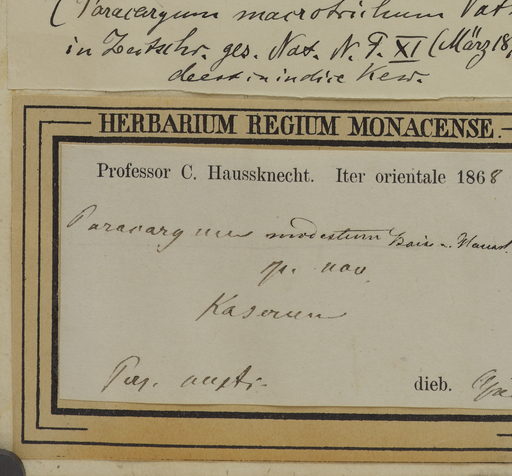 (Paracaryum macrotrichum Vat
in Zeitschr. ges. Nat. N. F. XI (März 18
deest in indice Kew.
HERBARIUM REGIUM MONACENSE.
Professor C. Haussknecht. Iter orientale 1868
Paracaryum modestum Boiss. Hausskn.
sp. nov.
Kaserun
Per. austr.
dieb.